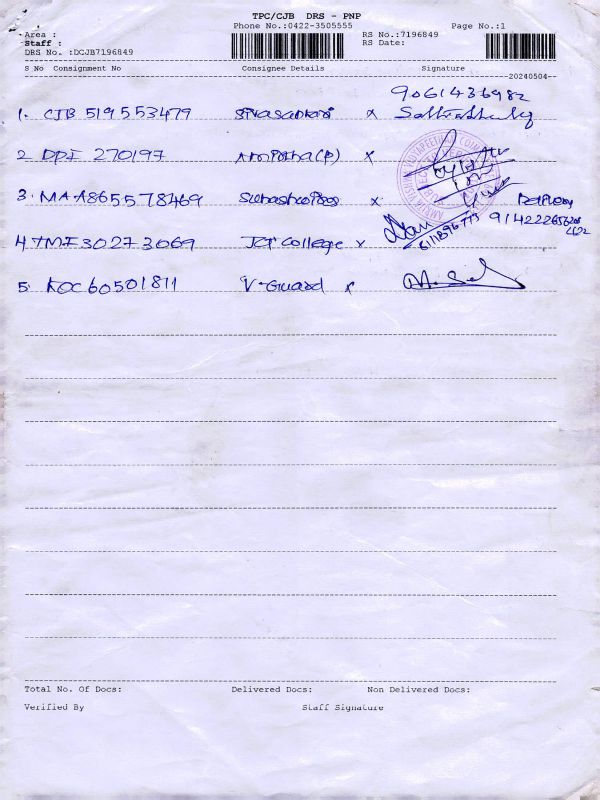 TPC/CJB DRS - PNP
Phone No.:0422-3505555 Page No.:1
Area : RS No.:7196849
Staff : RS Date:
DRS No. :DCJB7196849
S No Consignment No Consignee Details Signature
20240504
9061436982
1. CJB 519553479 Sivasankari x
2 DPI 270197 Amirtha(P) x
3. MAA865578469 x
4 TMI30273069 JCT College x
5. KOC60501811 V-Guard x
Total No. Of Docs: Delivered Docs: Non Delivered Docs:
Verified By Staff Signature